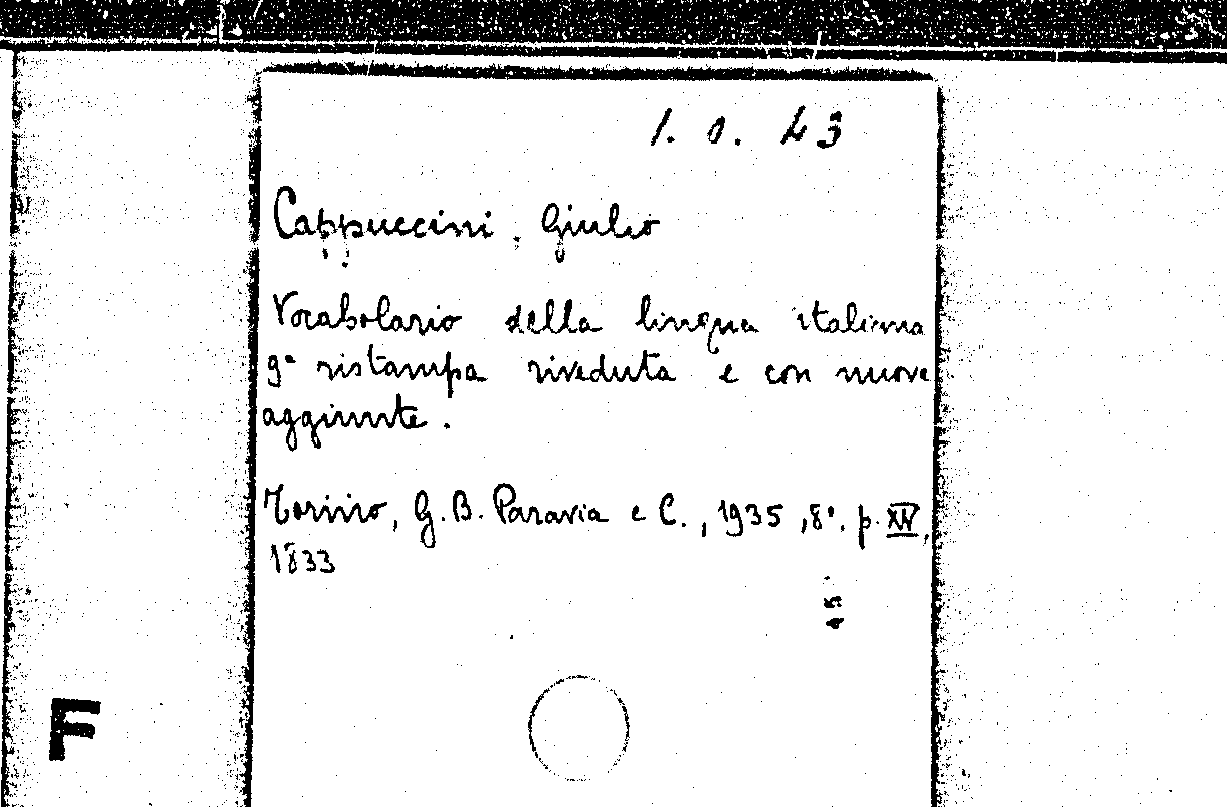 1. 0. 43
Cappuccini, Giulio
Vocabolario della lingua italiana
9ª ristampa riveduta e con nuove
aggiunte.
Torino, G. B. Paravia e C., 1935, 8°. p. XIV,
1833
F